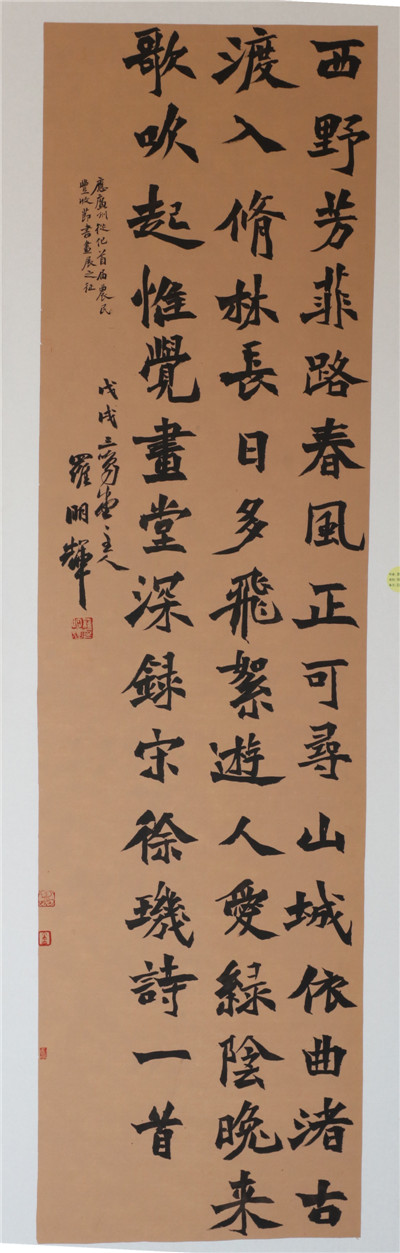 西野芳菲路春風正可尋山城依曲渚古
渡入脩林長日多飛絮遊人愛綠陰晚來
歌吹起惟覺畫堂深録宋徐璣詩一首
應廣州從化首届農民
豐收節書畫展之征
戊戌三多堂主人
羅明輝